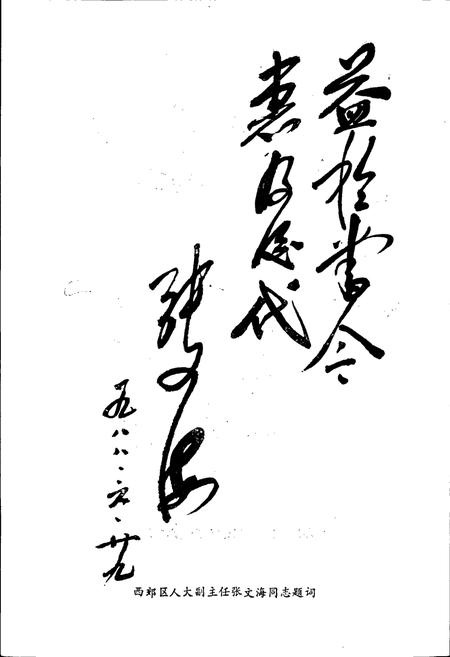 益於當今
惠及后代
张文海
一九八八.六.廿九
西郊区人大副主任张文海同志题词